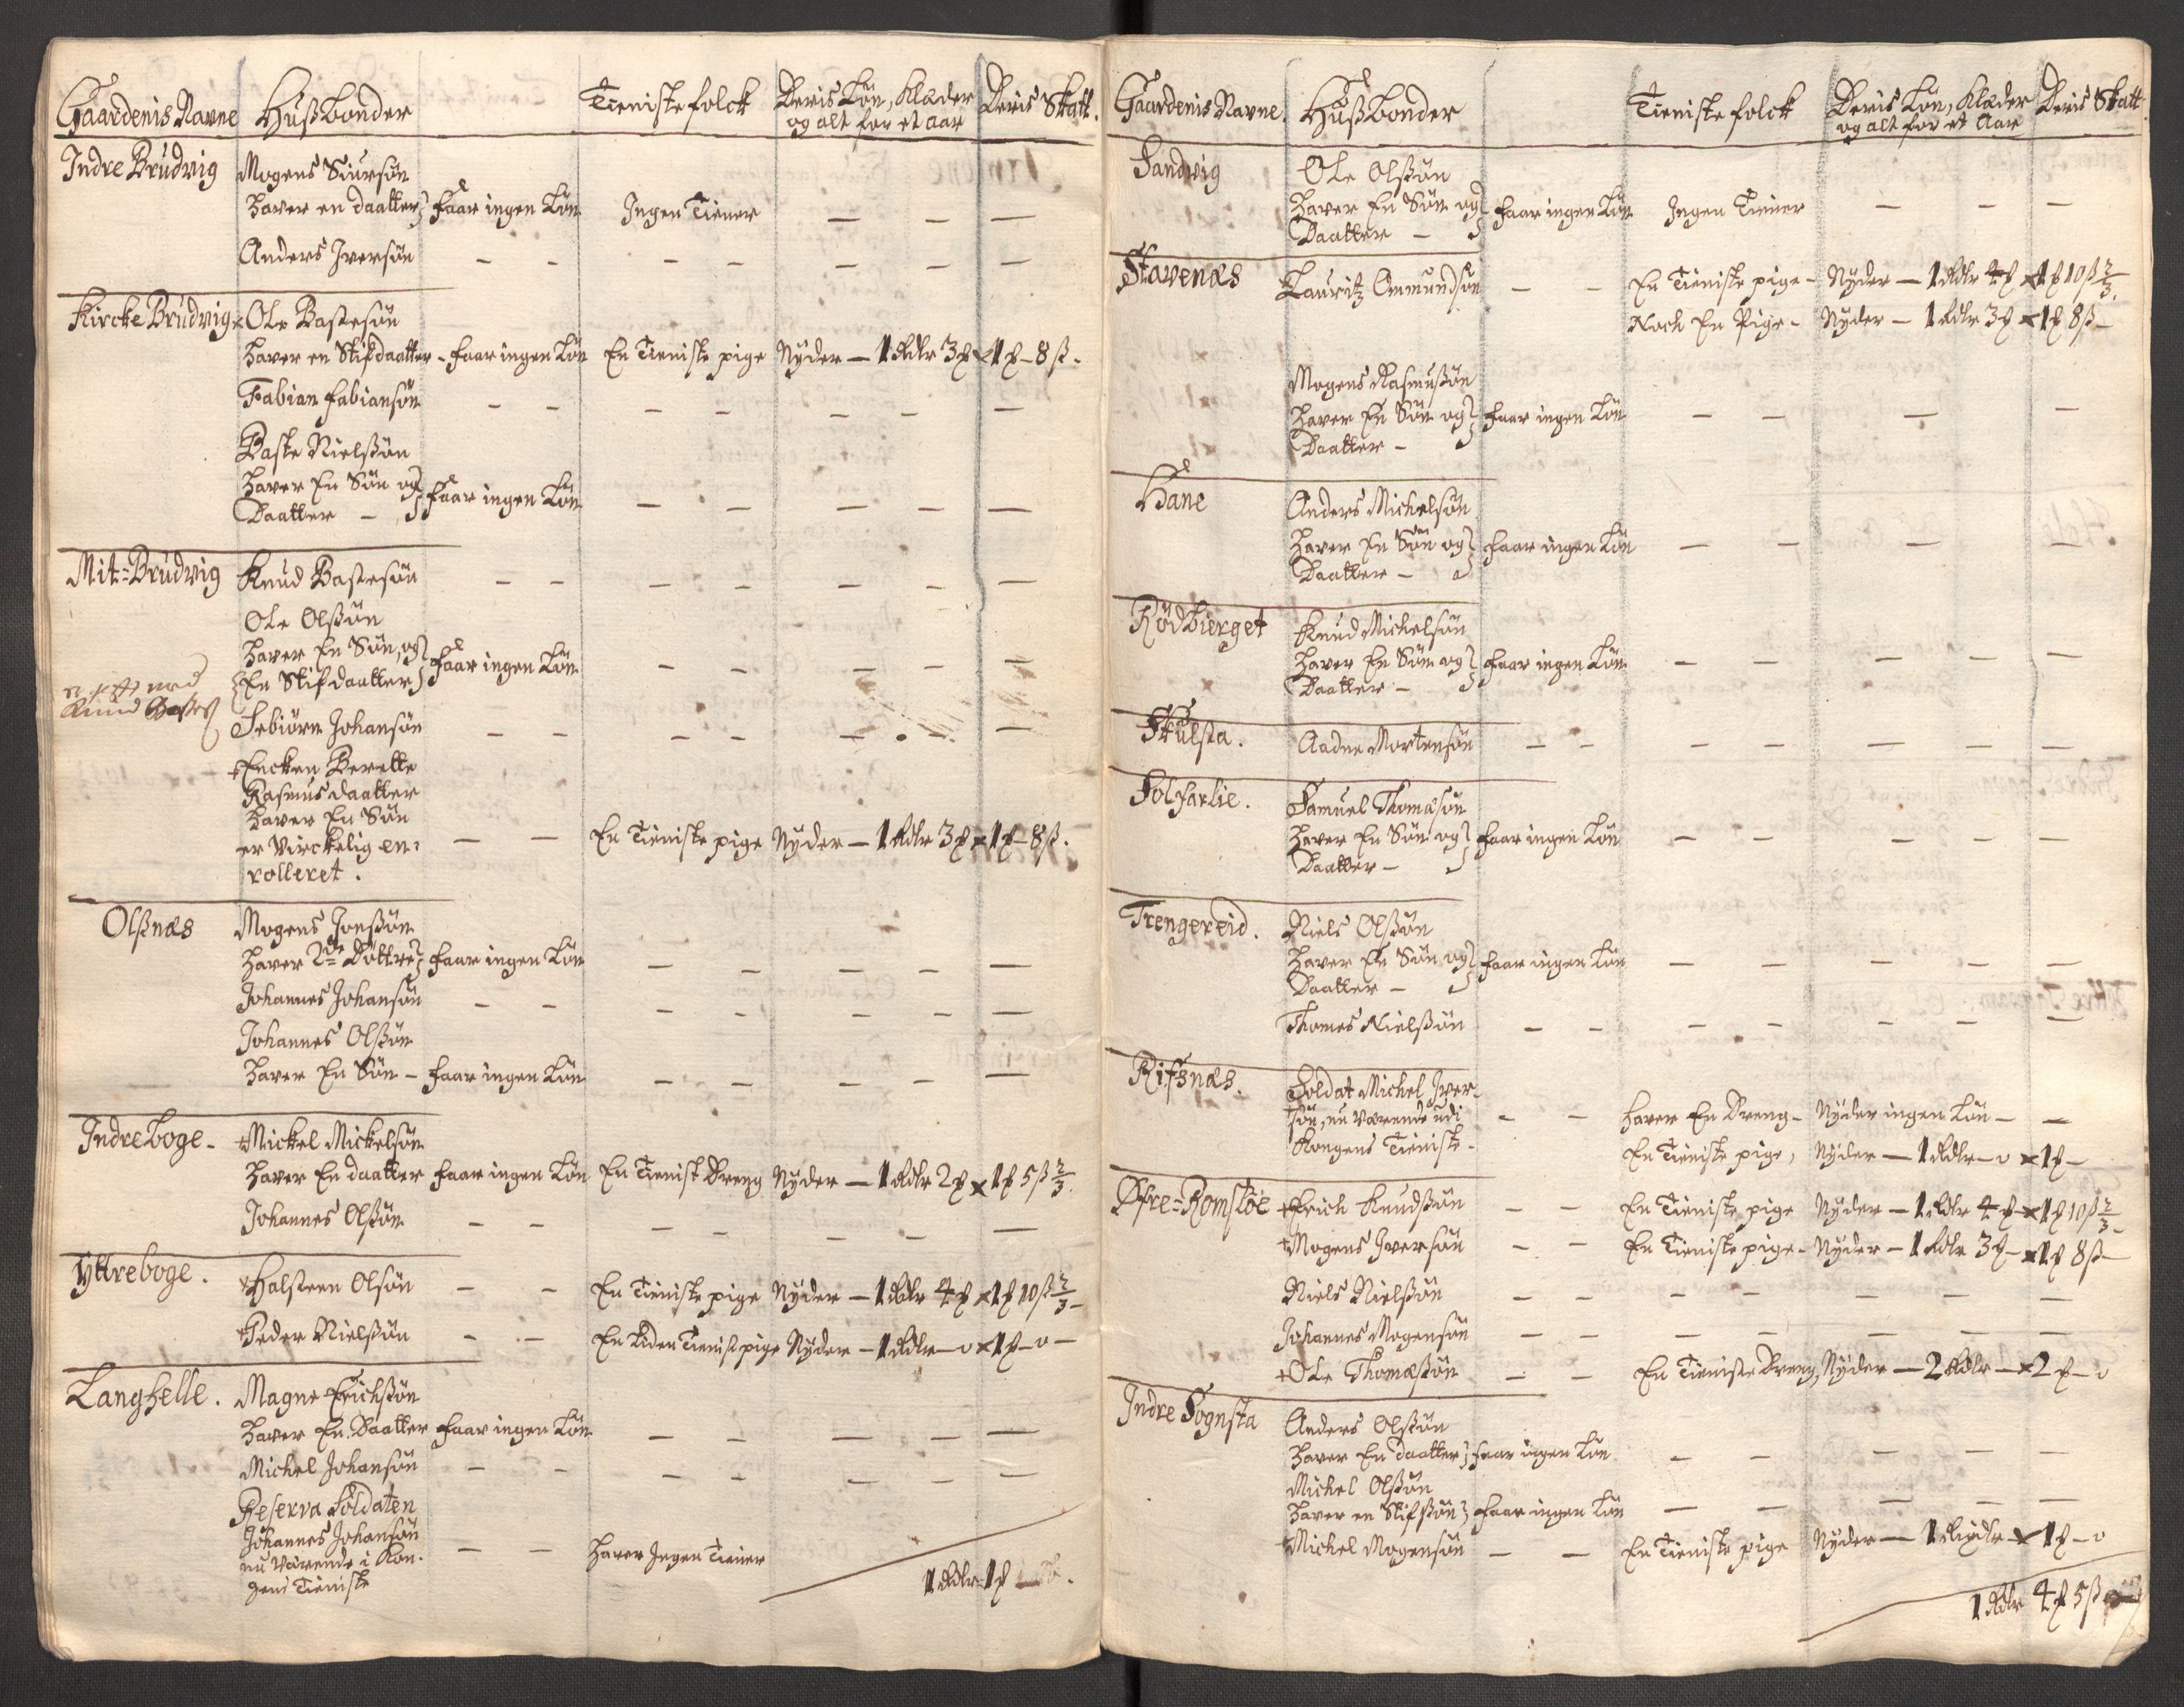 Gaardenis Navne Hußbonder Tieniste folck Deris Lön, Klæder og alt for et aar Deris Skatt.
Indre Brudvig Mogens Siursøn
haver en daatter faar ingen Lön Ingen Tiener — — —
Anders Iversøn - - - - — — —
Kircke Brudvig Ole Bastesøn
haver en Stifdaatter - faar ingen Lön En Tieniste pige Nyder — 1 Rdlr 3 ꝑ x 1 ꝑ - 8 ß -
Fabian Fabiansøn - - — — — — —
Baste Nielßøn
haver En Søn og
Daatter - faar ingen Lön — — — — —
Mit-Brudvig Knud Bastesøn - - — — — — —
Ole Olßøn
haver En Søn, og
En Stifdaatter faar ingen Lön — — — — —
Knud Bastes
Sebiørn Johansøn - - - - — — —
+ Encken Berette
Rasmusdaatter
haver En Søn
er Virckelig en-
rolleret. — — En Tieniste pige Nyder — 1 Rdlr 3 ꝑ x 1 ꝑ - 8 ß.
Olßnæs Mogens Jonßøn
haver 2de Døttre faar ingen Lön — — — — —
Johannes Johansøn - - - - — — —
Johannes Olßøn
haver En Søn - faar ingen Lön — — — — —
Indreboge - + Mickel Mickelsøn
haver En daatter faar ingen Lön En Tienist Dreng Nyder — 1 Rdlr 2 ꝑ x 1 ꝑ 5 ß 2/3.
Johannes Olßøn - - — — — — —
Yttreboge. + Halsteen Olsøn - - En Tieniste pige Nyder — 1 Rdlr 4 ꝑ x 1 ꝑ 10 ß 2/3 -
+ Peder Nielßøn - - En Liden Tienist pige Nyder — 1 Rdlr - o x 1 ꝑ - o -
Langhelle. Magne Erichsøn
haver En Daatter faar ingen Lön — — — — —
Michel Johansøn - - - - — — —
Reserva Soldaten
Johannes Johansøn
nu værende i Kon-
gens Tieniste — — haver Ingen Tiener
1 Rdlr 1 ꝑ
Gaardenis Navne Hußbonder Tieniste folck Deris Lön, Klæder og alt for et Aar Deris Skatt.
Sandvig Ole Olßøn
haver En Søn og
Daatter - faar ingen Lön Ingen Tiener — — —
Stavenæs Lauritz Ommundsøn - - En Tieniste pige - Nyder — 1 Rdlr 4 ꝑ x 1 ꝑ 10 ß 2/3.
Noch En Pige - Nyder — 1 Rdlr 3 ꝑ x 1 ꝑ 8 ß -
Mogens Rasmußøn
haver En Søn og
Daatter - faar ingen Lön — — — —
Hane Anders Michelsøn
haver En Søn og
Daatter - faar ingen Lön — — — —
Rödbierget Knud Michelsøn
haver En Søn og
Daatter - faar ingen Lön — — — — —
Skulsta. Aadne Mortensøn - - — — — — —
Solfarlie. Samuel Thomæsøn
haver En Søn og
Daatter - faar ingen Lön — — — — —
Trengereid. Niels Olßøn
haver En Søn og
Daatter - faar ingen Lön — — — — —
Thomes Nielßøn - - — — — — —
Rifsnæs. Soldat Michel Iver-
+ søn, nu værende udi
Kongens Tieniste - - - haver En Dreng - Nyder ingen Lön - —
En Tieniste pige, Nyder — 1 Rdlr - o x 1 ꝑ -
Øfre-Romsløe + Erich Knudßøn - - En Tieniste pige Nyder — 1 Rdlr 4 ꝑ x 1 ꝑ 10 ß 2/3 -
+ Mogens Iversøn - - En Tieniste pige - Nyder — 1 Rdlr 3 ꝑ - x 1 ꝑ 8 ß -
Niels Nielßøn - - - - — — —
Johannes Mogensøn — — — — — — —
+ Ole Thomæsøn - - En Tieniste Dreng, Nyder — 2 Rdlr - x 2 ꝑ - o
Indre Sognsta Anders Olßøn
haver En daatter faar ingen Lön — — — — —
Michel Olßøn
haver en Stifsøn faar ingen Lön — — — — —
Michel Mogensøn — — En Tieniste pige Nyder — 1 Rixdlr x 1 ꝑ - o
1 Rdlr 4 ꝑ 5 ß